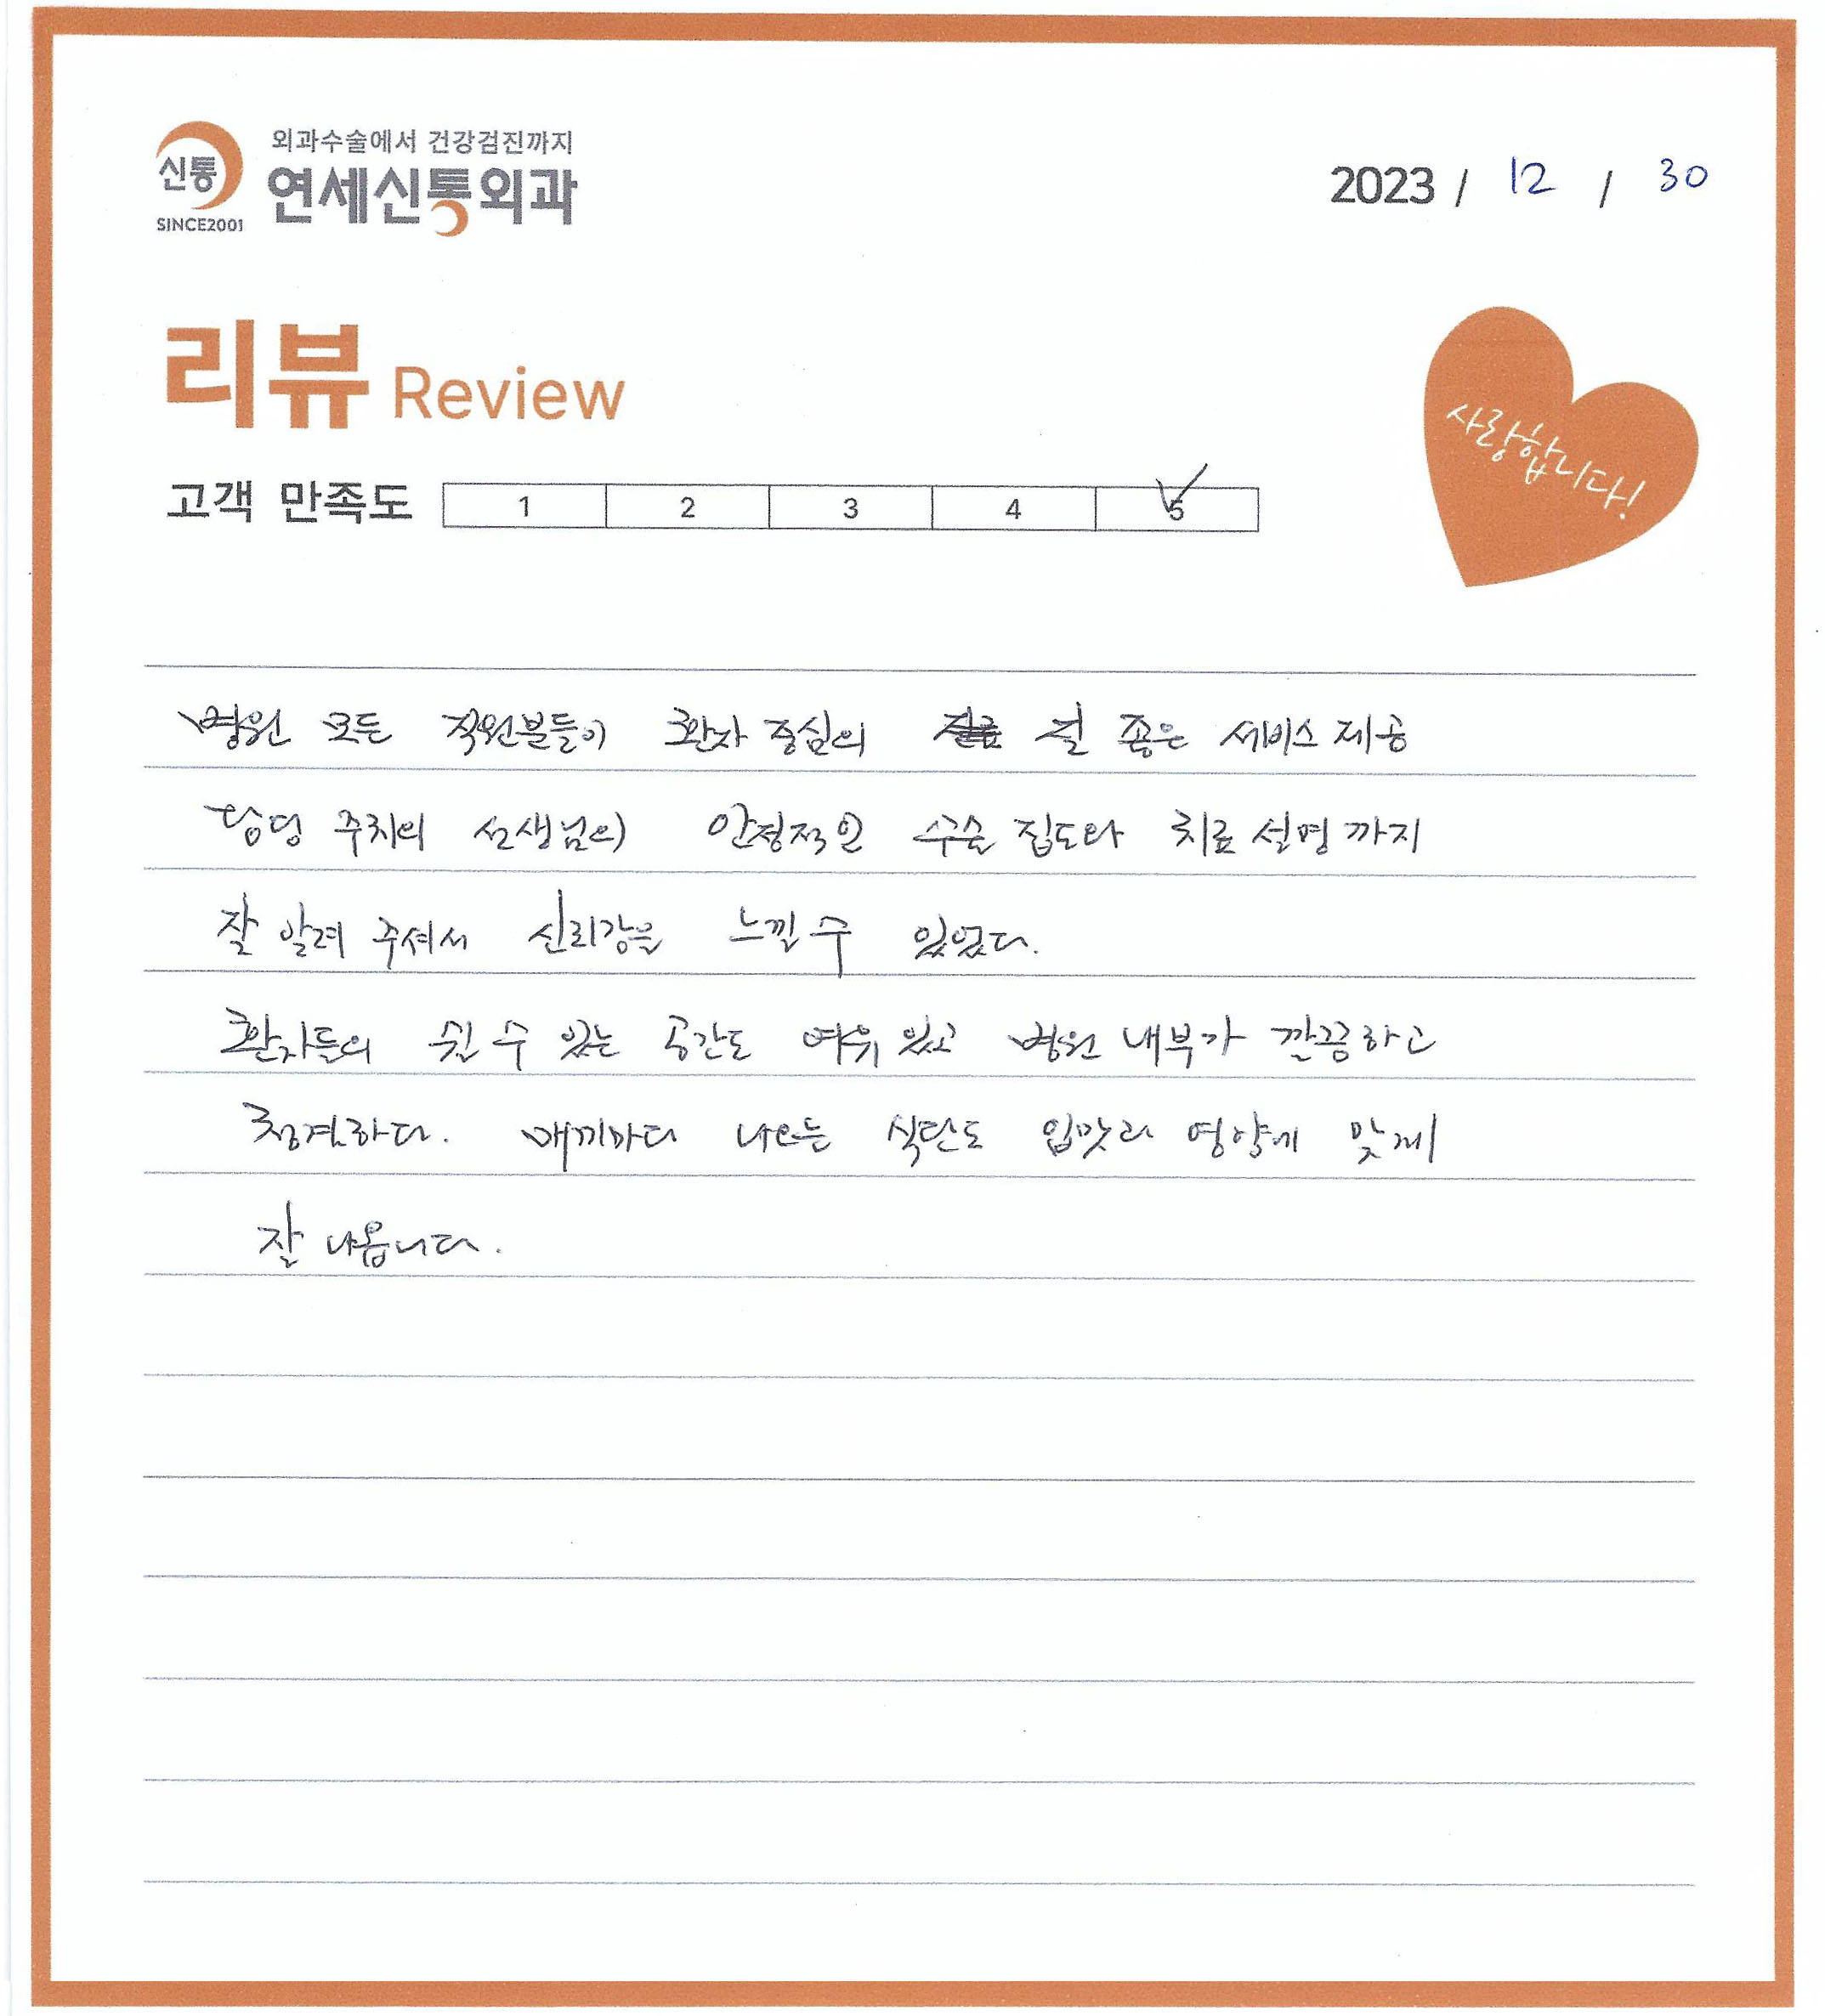 외과수술에서 건강검진까지
신통
연세신통외과
SINCE2001
2023 / 12 / 30
리뷰 Review
사랑합니다!
고객 만족도 1 2 3 4 5
병원 모든 직원분들이 환자 중심의 질 좋은 서비스 제공
담당 주치의 선생님의 안정적인 수술 집도와 치료 설명 까지
잘 알려 주셔서 신뢰감을 느낄 수 있었다.
환자들의 쉴 수 있는 공간도 여유 있고 병원 내부가 깔끔하고
청결하다. 매끼마다 나오는 식단도 입맛과 영양에 맞게
잘 나옵니다.